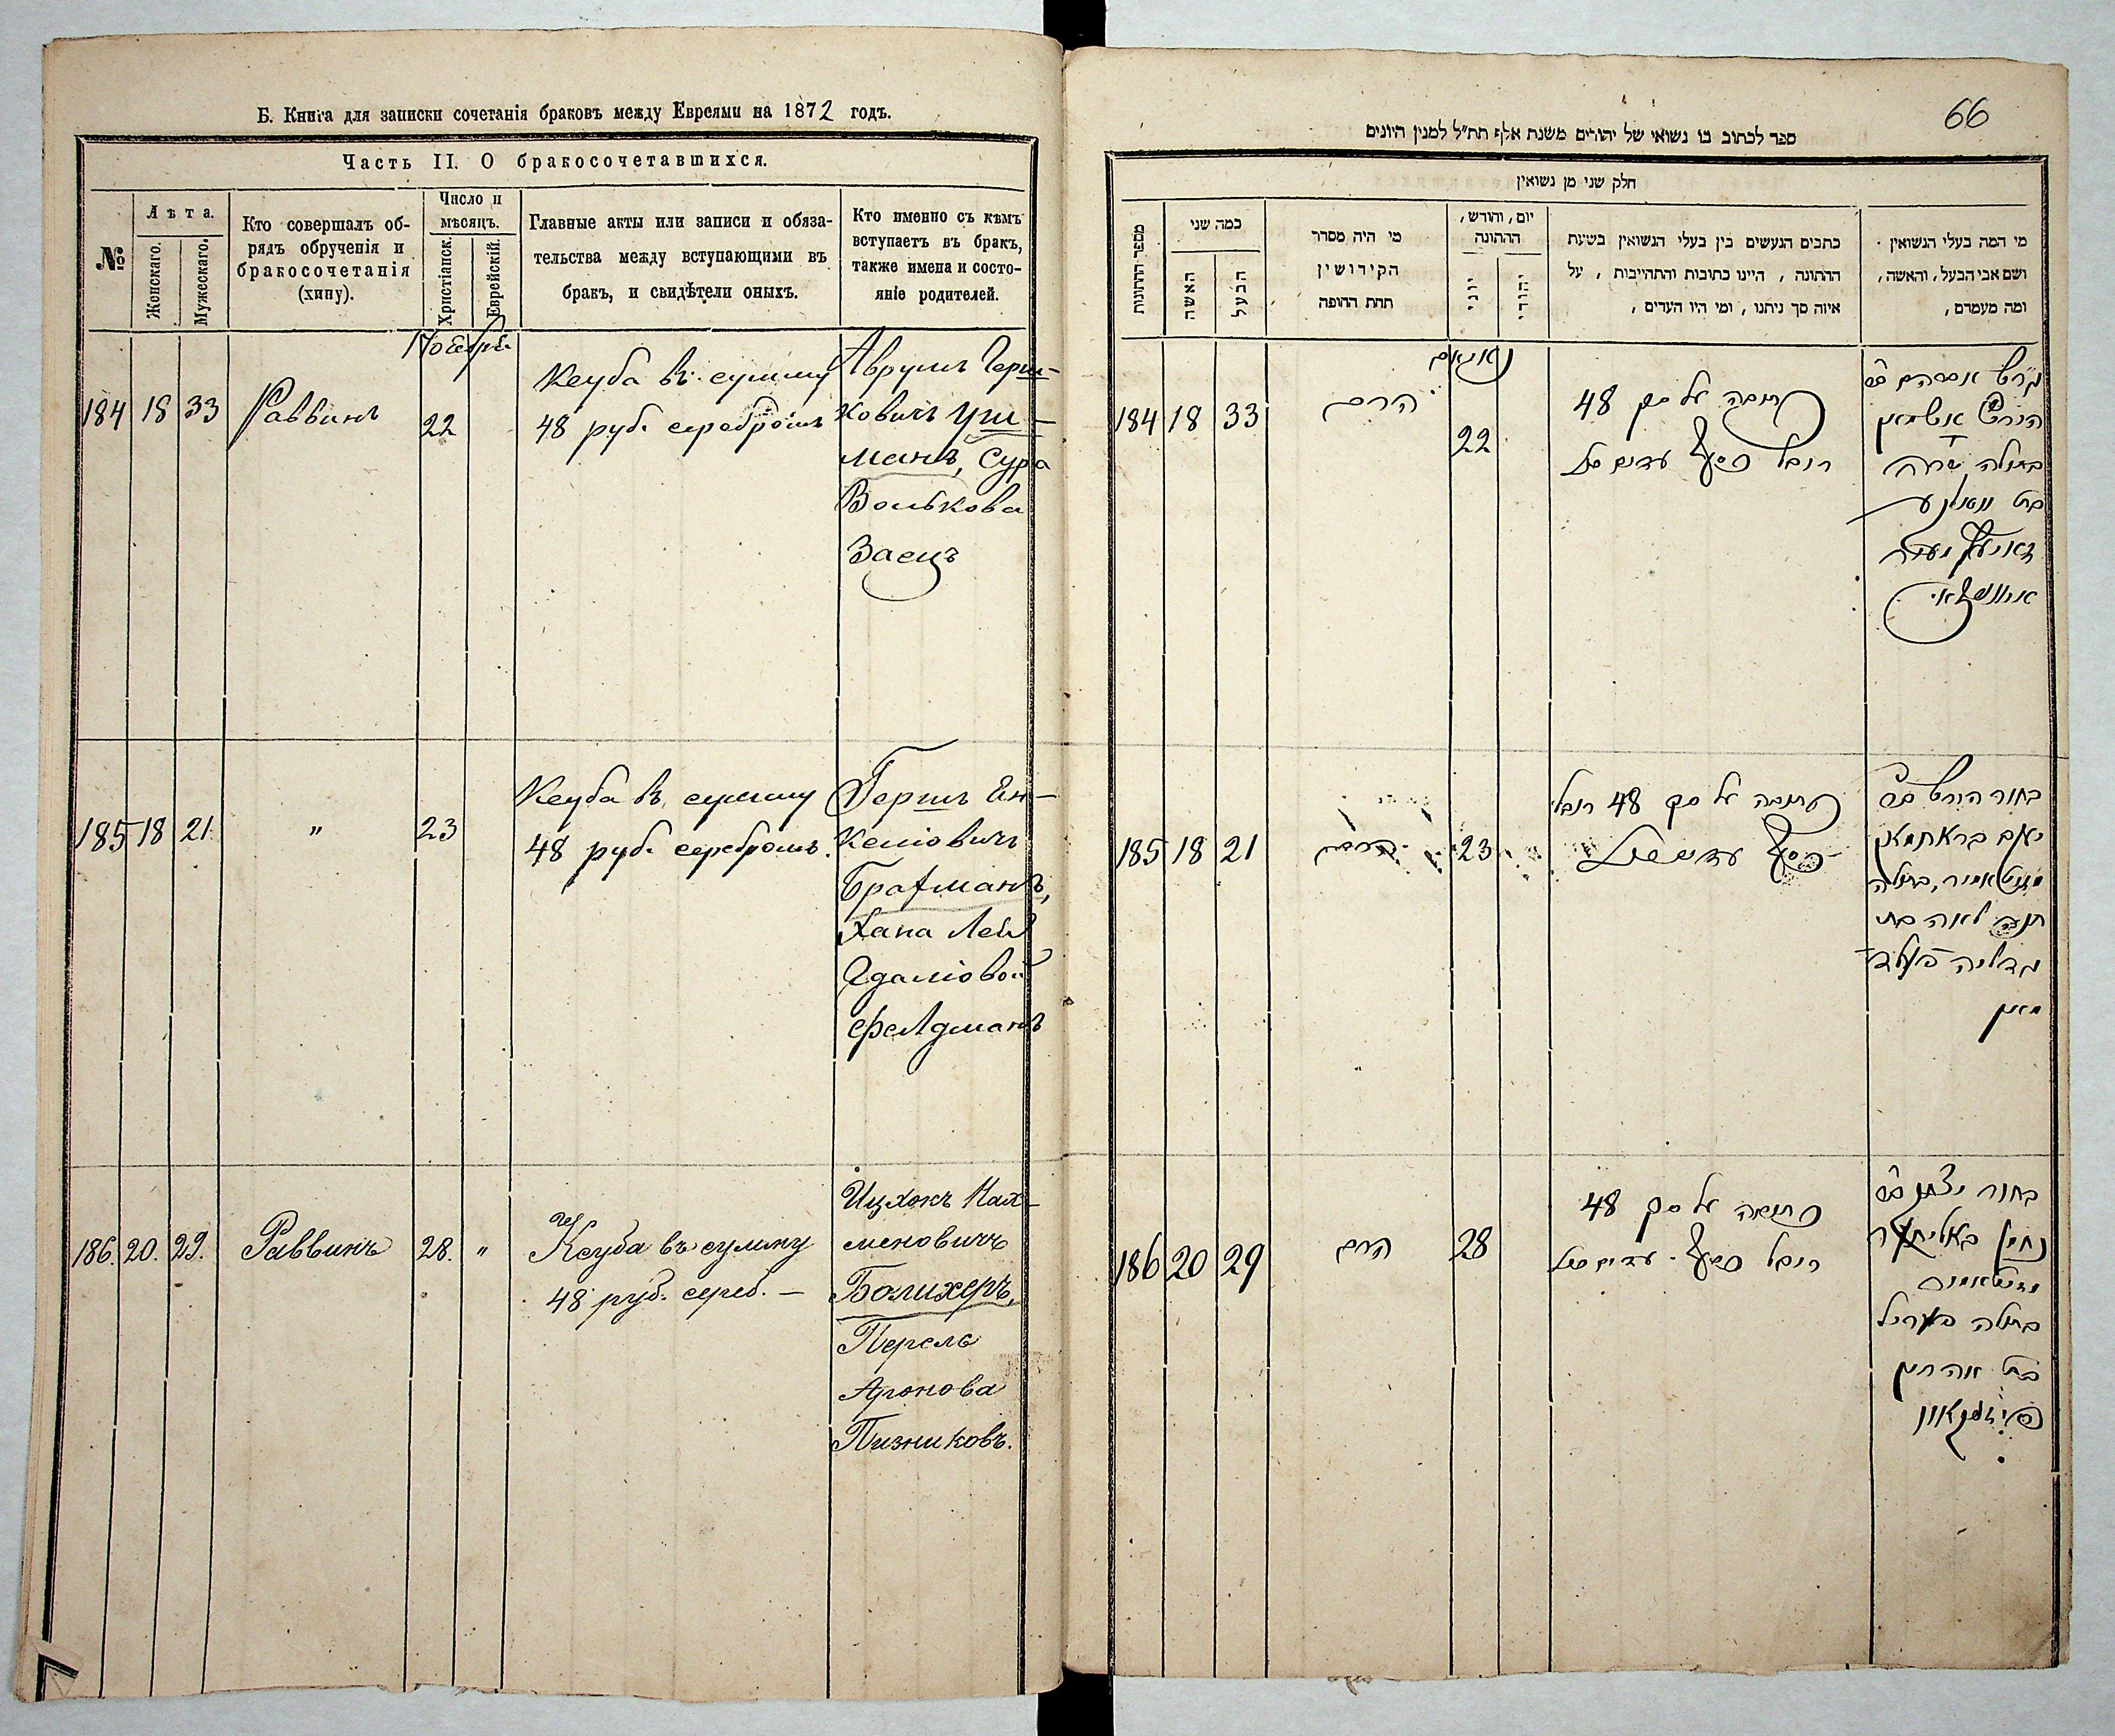 Б. Книга для записки сочетанія браковъ между Евреями на 1872 годъ.
Часть II. О бракосочетавшихся.
№
Лѣта.
Женскаго.
Мужескаго.
Кто совершалъ об-
рядъ обрученія и
бракосочетанія
(хипу).
Число и
мѣсяцъ.
Христіанск.
Еврейскій.
Главные акты или записи и обяза-
тельства между вступающими въ
бракъ, и свидѣтели оныхъ.
Кто именно съ кѣмъ
вступаетъ въ бракъ,
также имена и состо-
яніе родителей.
Ноября
184 18 33 Раввинъ 22
Кеуба въ сумму
48 руб. серебромъ
Аврумъ Герш-
ковичъ Уш-
манъ, Сура
Волькова
Заецъ
185 18 21 " 23
Кеуба въ сумму
48 руб. серебромъ.
Гершъ Ян-
келіовичъ
Братманъ,
Хана Лея
Гдаліовой
Фелдманъ
186. 20. 29. Раввинъ 28. "
Кеуба въ сумму
48 руб. сереб. —
Ицхокъ Нах-
меновичъ
Болихеръ,
Перель
Аронова
Пизниковъ.
66
ספר לכתוב בו נשואי של יהודים משנת אלף תת״ל למנין היונים
חלק שני מן נשואין
מספר החתונות
כמה שני
האשה
הבעל
מי היה מסדר
הקידושין
תחת החופה
יום, וחורש,
החתונה
יוני
יהודי
כתבים הנעשים בין בעלי הנשואין בשעת
החתונה, היינו כתובות והתחייבות, על
איזה סך ניתנו, ומי היו העדים,
מי המה בעלי הנשואין
ושם אבי הבעל, והאשה,
ומה מעמדם,
184 18 33 הרב 22
כתובה על סך 48
רובל כסף
אברהם
הירש אושמאן
בתולה שרה
בת
185 18 21 23
כתובה על סך 48 רובל
כסף
בחור הירש
יאנקב בראתמאן
בתולה
חנה לאה בת
גדליה פעלד
מאן
186 20 29 הרב 28
כתובה על סך 48
רובל כסף
בחור יצחק
נחמן באליחער
בתולה פערל
בת אהרון